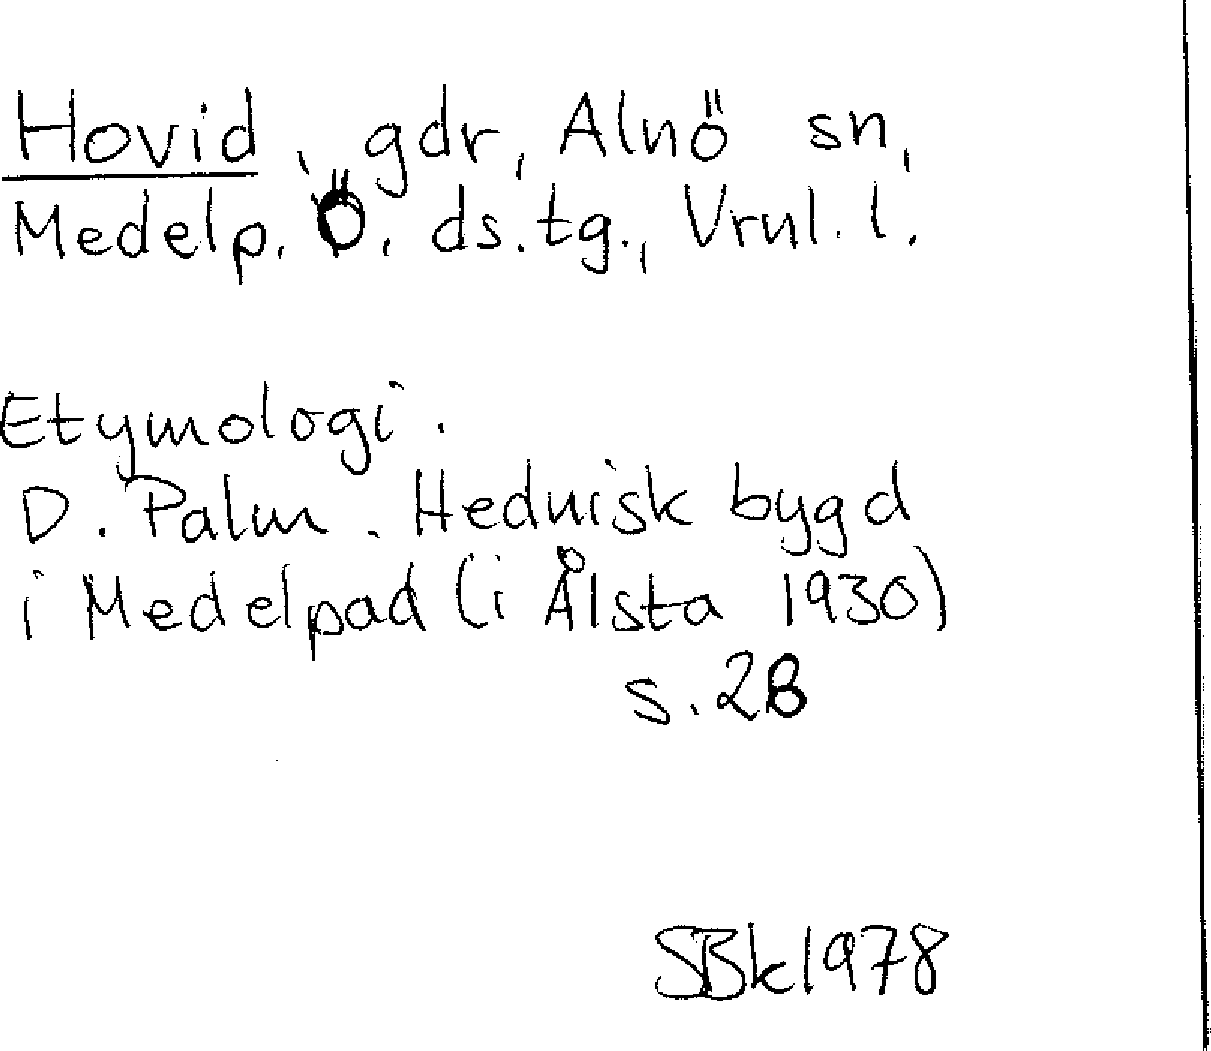 Hovid, gdr, Alnö sn,
Medelp. Ö. ds.tg., Vrnl. l.
Etymologi.
D. Palm. Hednisk bygd
i Medelpad (i Ålsta 1930)
s. 28
SBk1978